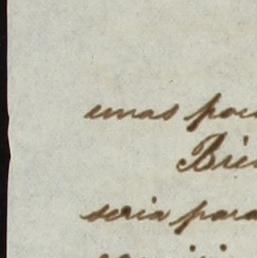 unas poc
Bie
seria para